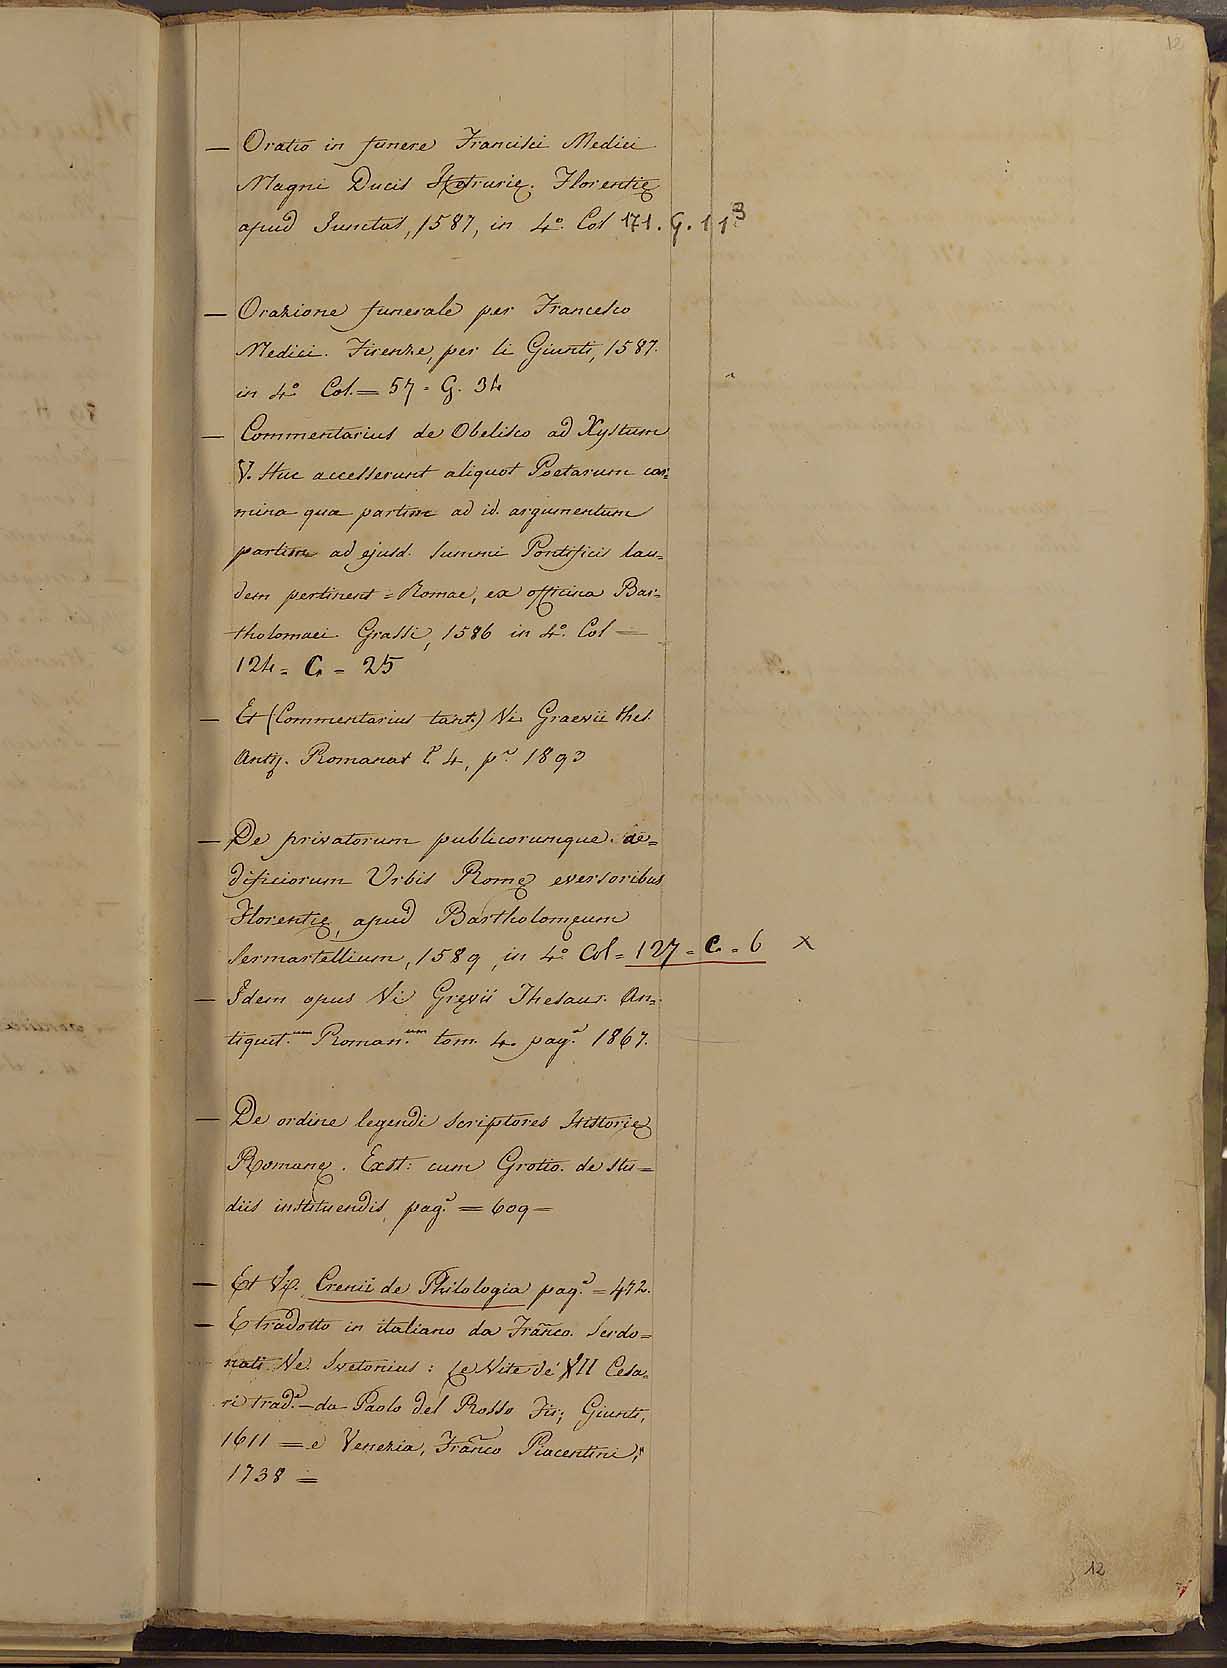 12
— Oratio in funere Francisci Medici
Magni Ducis Hetrurię. Florentię
apud Junctas, 1587, in 4º. Col 171. G. 11³
— Orazione funerale per Francesco
Medici. Firenze, per li Giunti, 1587.
in 4º Col. = 57 = G. 34
— Commentarius de Obelisco ad Xystum
V. Huc accesserunt aliquot Poetarum car=
mina qua partim ad id. argumentum
partim ad ejusd. Summi Pontificis lau=
dem pertinent = Romae, ex officina Bar=
tholomaei Grassi, 1586 in 4º. Col =
124 = C = 25
— Et (Commentarius tant.) Ve Graevii thes.
Antiq. Romanar t. 4, pª 1893
— De privatorum publicorumque ae=
dificiorum Urbis Romę eversoribus
Florentię, apud Bartholomęum
Sermartellium, 1589, in 4º Col = 127 = C = 6 X
— Idem opus Ve Gręvii Thesaur. An=
tiquit.um Roman.um tom. 4. pag.ª 1867.
— De ordine legendi scriptores Historię
Romanę. Exst: cum Grotio. de stu=
diis instituendis pag.ª = 609 =
— Et Ve. Crenii de Philologia pag.ª = 472.
— E tradotto in italiano da Franco. Serdo=
nati. Ve. Svetonius: Le Vite de' XII Cesa=
ri trad.ª — da Paolo del Rosso Fir; Giunti,
1611 = e Venezia, Franco Piacentini,
1738 =
12